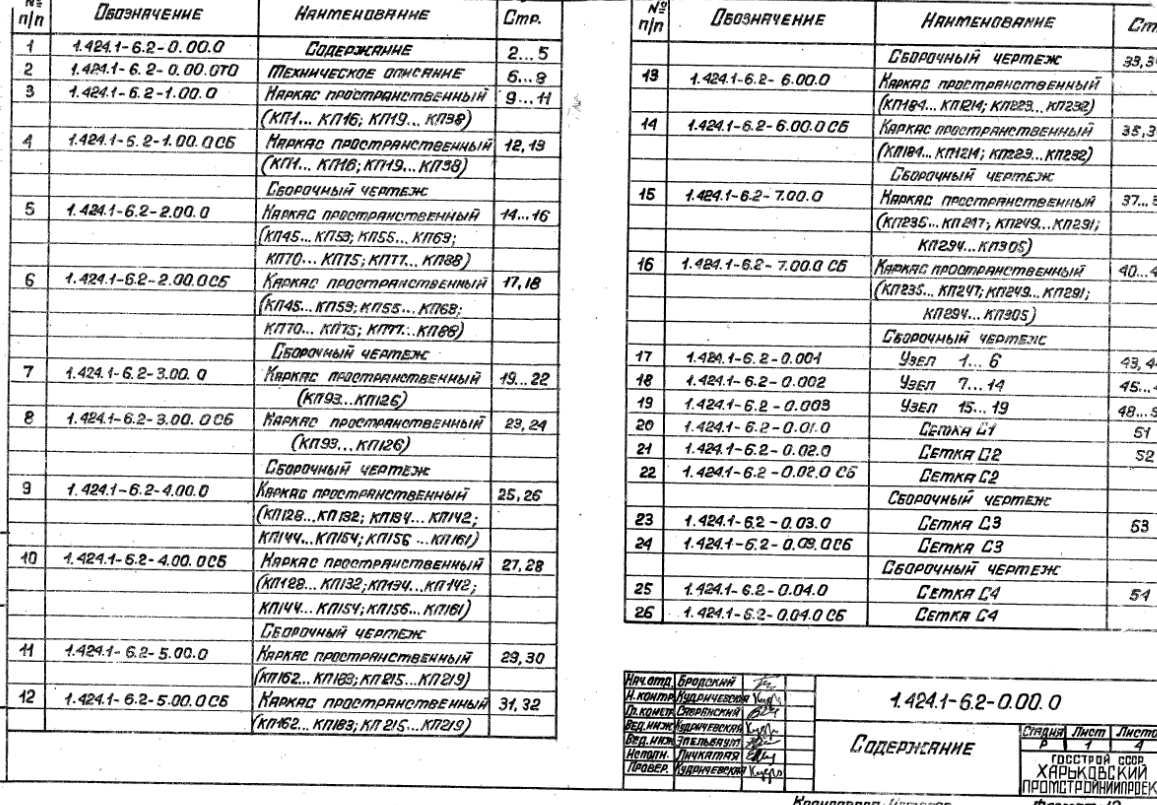 № п/п Обозначение Наименование Стр.
1 1.424.1-6.2-0.00.0 Содержание 2...5
2 1.424.1-6.2-0.00.0ТО Техническое описание 6...8
3 1.424.1-6.2-1.00.0 Каркас пространственный 9...11
(КП1... КП16; КП19... КП38)
4 1.424.1-6.2-1.00.0СБ Каркас пространственный 12,13
(КП1... КП16; КП19... КП38)
Сборочный чертеж
5 1.424.1-6.2-2.00.0 Каркас пространственный 14...16
(КП45... КП53; КП55... КП69;
КП70... КП75; КП77... КП88)
6 1.424.1-6.2-2.00.0СБ Каркас пространственный 17,18
(КП45... КП53; КП55... КП68;
КП70... КП75; КП77... КП88)
Сборочный чертеж
7 1.424.1-6.2-3.00.0 Каркас пространственный 19...22
(КП93... КП126)
8 1.424.1-6.2-3.00.0СБ Каркас пространственный 23,24
(КП93... КП126)
Сборочный чертеж
9 1.424.1-6.2-4.00.0 Каркас пространственный 25,26
(КП128... КП132; КП134... КП142;
КП144... КП154; КП156... КП161)
10 1.424.1-6.2-4.00.0СБ Каркас пространственный 27,28
(КП128... КП132; КП134... КП142;
КП144... КП154; КП156... КП161)
Сборочный чертеж
11 1.424.1-6.2-5.00.0 Каркас пространственный 29,30
(КП162... КП183; КП215... КП219)
12 1.424.1-6.2-5.00.0СБ Каркас пространственный 31,32
(КП162... КП183; КП215... КП219)
№ п/п Обозначение Наименование
Сборочный чертеж
13 1.424.1-6.2-6.00.0 Каркас пространственный
(КП184... КП214; КП223... КП232)
14 1.424.1-6.2-6.00.0СБ Каркас пространственный
(КП184... КП214; КП223... КП232)
Сборочный чертеж
15 1.424.1-6.2-7.00.0 Каркас пространственный
(КП235... КП247; КП249... КП291;
КП294... КП305)
16 1.424.1-6.2-7.00.0СБ Каркас пространственный
(КП235... КП247; КП249... КП291;
КП294... КП305)
Сборочный чертеж
17 1.424.1-6.2-0.001 Узел 1...6
18 1.424.1-6.2-0.002 Узел 7...14
19 1.424.1-6.2-0.003 Узел 15...19
20 1.424.1-6.2-0.01.0 Сетка С1 51
21 1.424.1-6.2-0.02.0 Сетка С2 52
22 1.424.1-6.2-0.02.0СБ Сетка С2
Сборочный чертеж
23 1.424.1-6.2-0.03.0 Сетка С3 53
24 1.424.1-6.2-0.03.0СБ Сетка С3
Сборочный чертеж
25 1.424.1-6.2-0.04.0 Сетка С4 54
26 1.424.1-6.2-0.04.0СБ Сетка С4
Нач.отд. Бродский
Н.контр. Кудричевская
Гл.констр.
Вед.инж. Кудричевская
Вед.инж. Эпельбаум
Исполн.
Провер. Кудричевская
1.424.1-6.2-0.00.0
Содержание
Стадия Лист
Р 1 4
Госстрой СССР
Харьковский